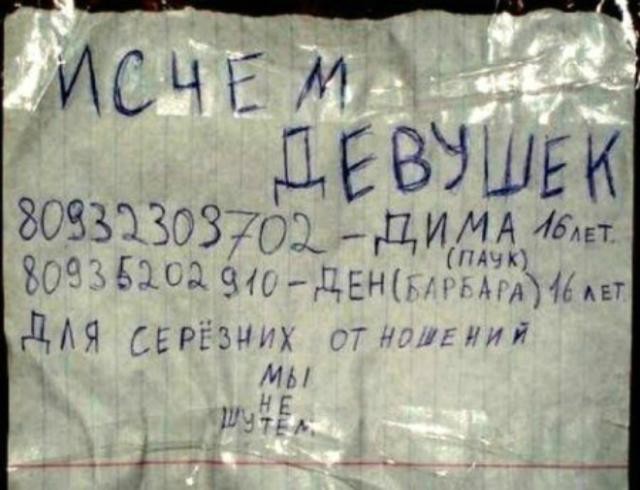 ИСЧЕМ
ДЕВУШЕК
80932303702 - ДИМА 16 ЛЕТ.
(ПАУК)
80935202910 - ДЕН (БАРБАРА) 16 ЛЕТ
ДЛЯ СЕРЁЗНИХ ОТНОШЕНИЙ
МЫ
НЕ
ШУТЕМ.